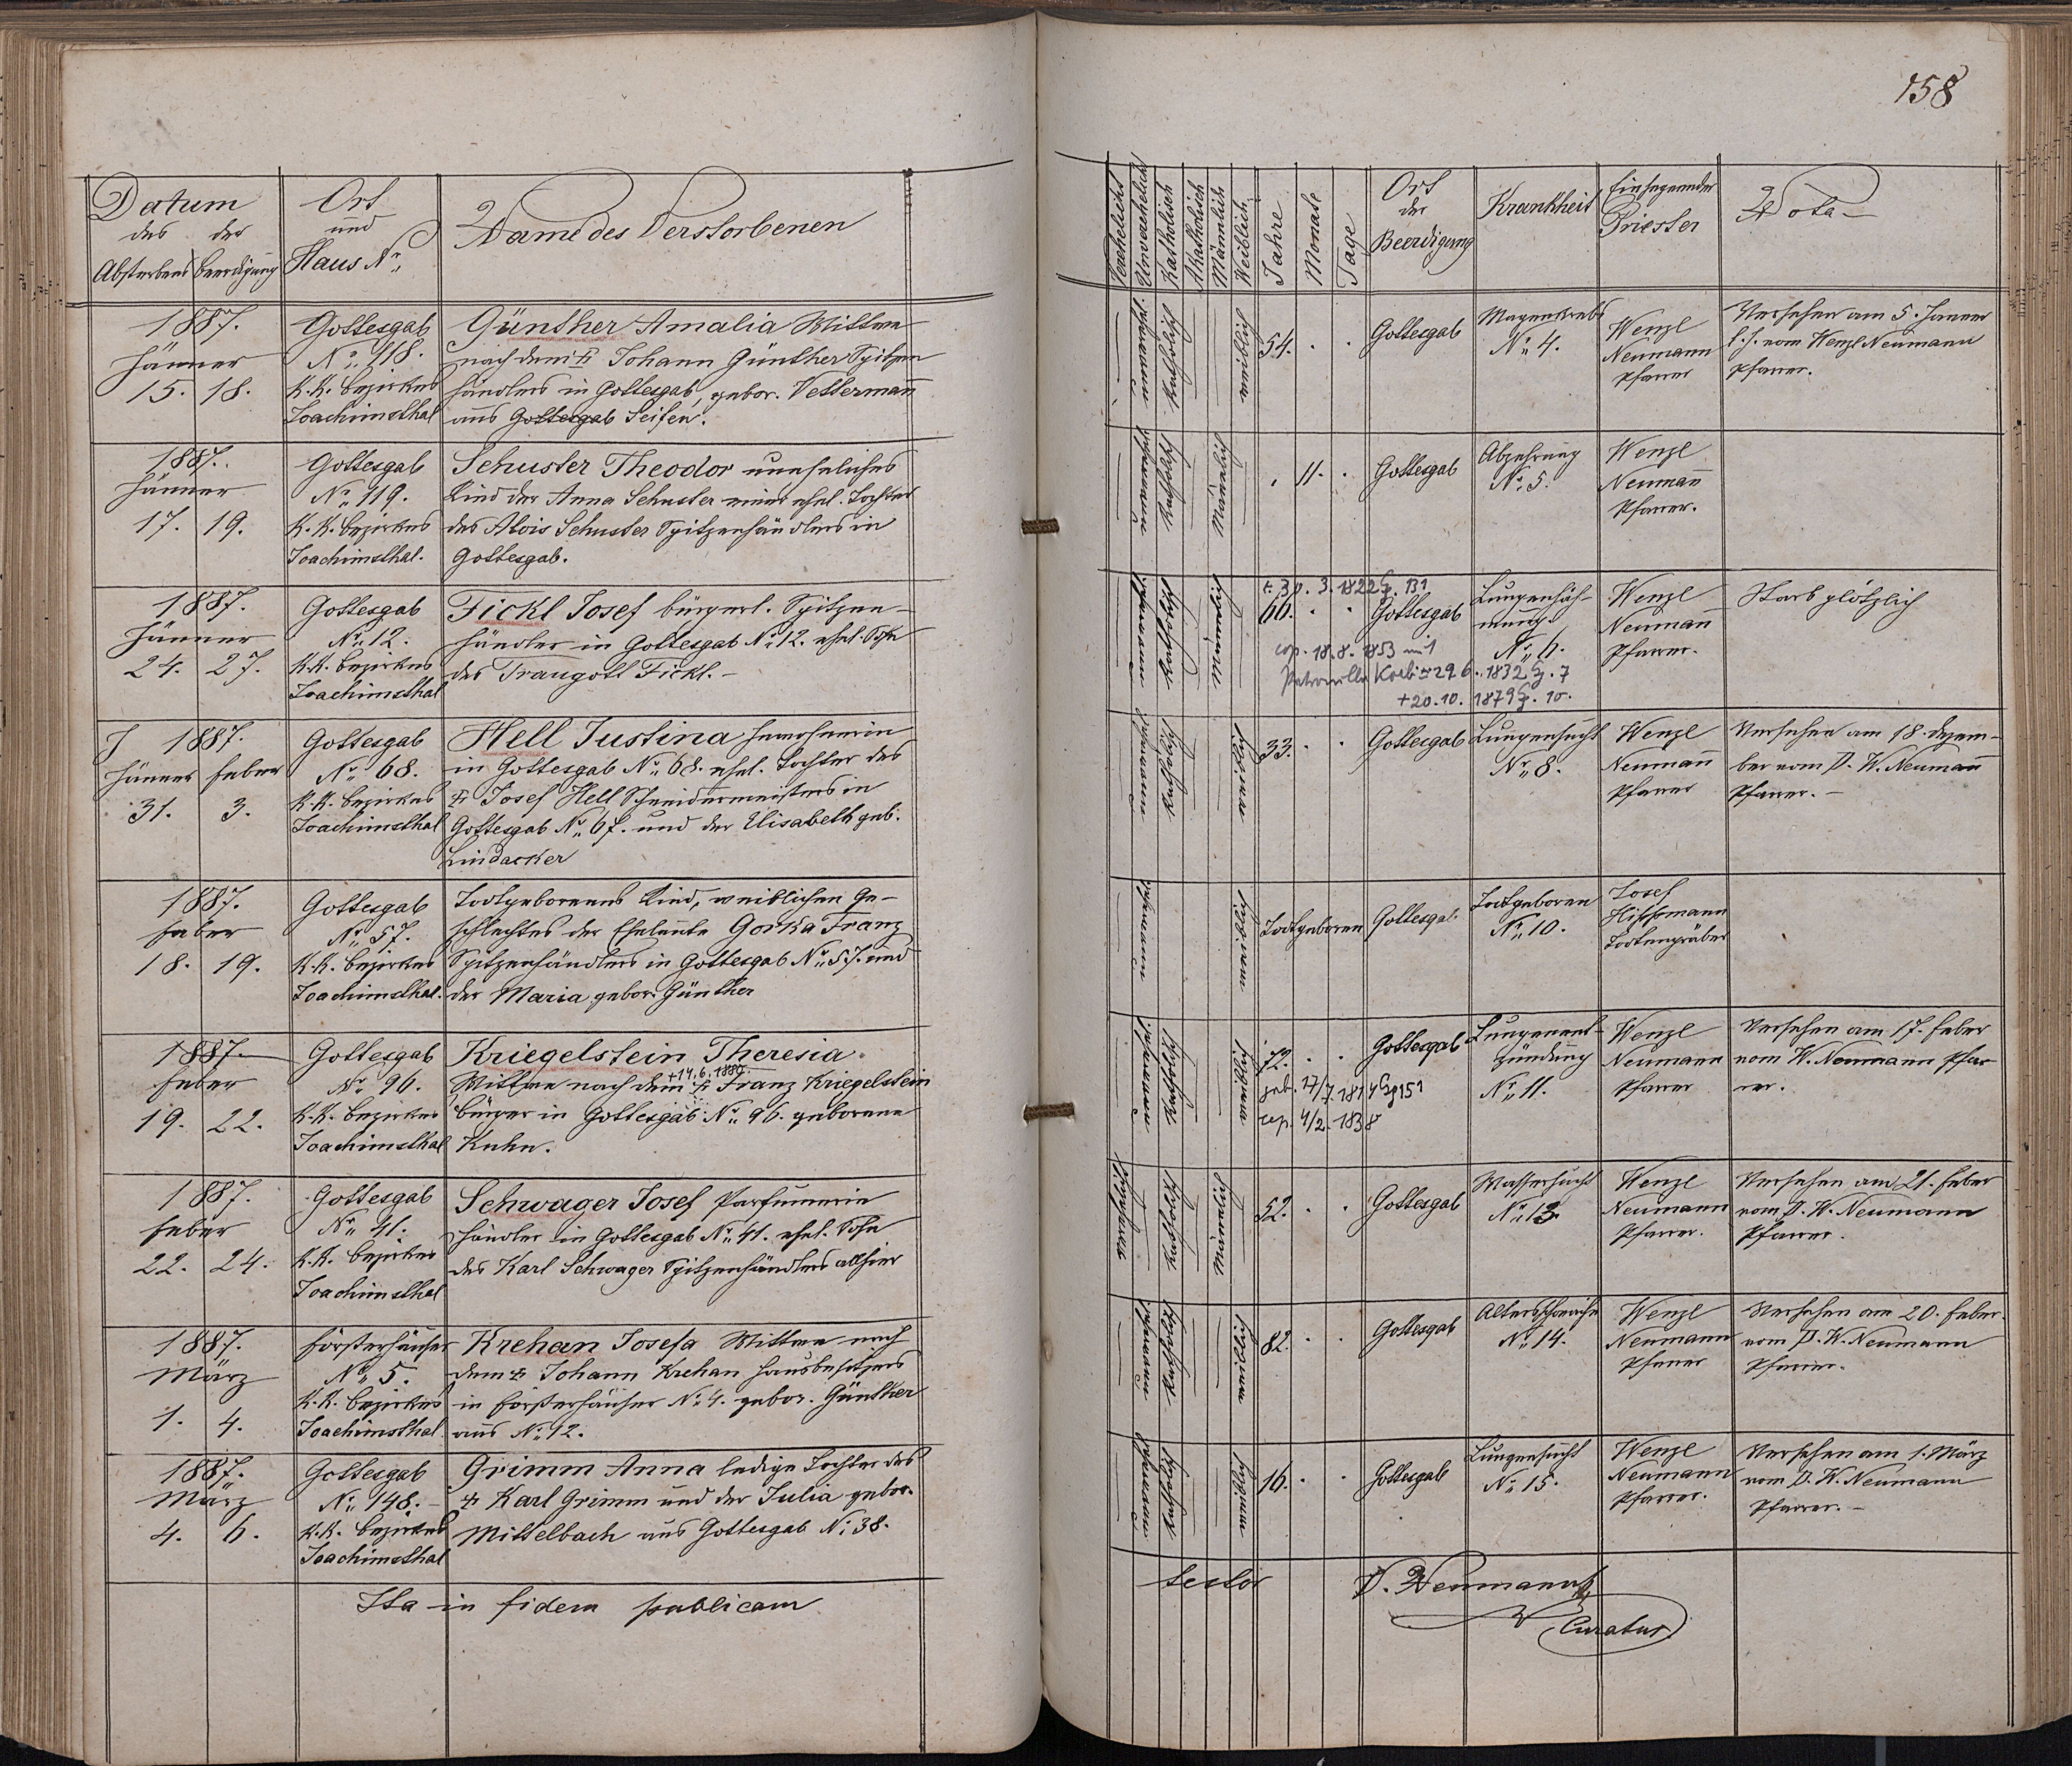 158
Datum
des der
Absterbens Beerdigung
Ort
und
Haus Nr.
Name des Verstorbenen
Verehelicht
Unverehelicht
Katholisch
Akatholisch
Männlich
Weiblich
Jahre
Monate
Tage
Ort
der
Beerdigung
Krankheit
Einsegnender
Priester
Nota
1887.
Jänner
15. 18.
Gottesgab
No. 118.
K.K. Bezirkes
Joachimsthal
Günther Amalia Wittwe
nach dem † Johann Günther Spitzen
händlers in Gottesgab, gebor. Vettermann
aus Gottesgab Seifen.
katholisch
weiblich
54. . .
Gottesgab
Magenkrebs
No. 4.
Wenzl
Neumann
Pfarrer
Versehen am 5. Jänner
l. J. vom Wenzl Neumann
Pfarrer.
1887.
Jänner
17. 19.
Gottesgab
No. 119.
K.K. Bezirkes
Joachimsthal.
Schuster Theodor uneheliches
Kind der Anna Schuster einer ehel. Tochter
des Alois Schuster Spitzenhändlers in
Gottesgab.
katholisch
Männlich
. 11. .
Gottesgab
Abzehrung
No. 5.
Wenzl
Neumann
Pfarrer.
1887.
Jänner
24. 27.
Gottesgab
No. 12.
K.K. Bezirkes
Joachimsthal
Fickl Josef bürgerl. Spitzen-
händler in Gottesgab No. 12. ehel. Sohn
des Traugott Fickl. –
katholisch
männlich
30. 3. 1822 G. 131
66. . .
Gottesgab
cop. 18.8. 1853 mit
Petronella 29 6. 1832 G. 7
+ 20. 10. 1879 G. 10.
Lungenläh-
mung.
No. 6.
Wenzl
Neumann
Pfarrer.
Starb plötzlich
1887.
Jänner Feber
31. 3.
Gottesgab
No. 68.
K.K. Bezirkes
Joachimsthal
Hell Justina
in Gottesgab No. 68. ehel. Tochter des
† Josef Hell Schneidermeisters in
Gottesgab No. 67. und der Elisabeth geb.
Lindacker
katholisch
weiblich
33. . .
Gottesgab
Lungensucht
No. 8.
Wenzl
Neumann
Pfarrer
Versehen am 18. Dezem-
ber vom P. W. Neumann
Pfarrer. –
1887.
Feber
18. 19.
Gottesgab
No. 57.
K.K. Bezirkes
Joachimsthal.
Todtgeborenes Kind, weiblichen Ge-
schlechtes der Eheleute Gorka Franz
Spitzenhändlers in Gottesgab No. 57. und
der Maria gebor. Günther
weiblich
Todtgeboren
Gottesgab.
Todtgeboren
No. 10.
Josef
Todtengräber
1887.
Feber
19. 22.
Gottesgab
No. 96.
K.K. Bezirkes
Joachimsthal
Kriegelstein Theresia
+14.6.1880.
Wittwe nach dem † Franz Kriegelstein
Bürger in Gottesgab No. 96. geborene
Kuhn.
katholisch
weiblich
72. . .
geb. 17/7. 1814 G 151
cop. 4/2. 1838
Gottesgab
Lungenent-
zündung
No. 11.
Wenzl
Neumann
Pfarrer
Versehen am 17. Feber
vom W. Neumann Pfar
rer.
1887.
Feber
22. 24.
Gottesgab
No. 41.
K.K. Bezirkes
Joachimsthal
Schwager Josef Parfümerie
händler in Gottesgab No. 41. ehel. Sohn
des Karl Schwager Spitzenhändlers allhier
verehelicht
katholisch
männlich
52. . .
Gottesgab
Wassersucht
No. 13.
Wenzl
Neumann
Pfarrer.
Versehen am 21. Feber
vom P. W. Neumann
Pfarrer.
1887.
März
1. 4.
Försterhäuser
No. 5.
K.K. Bezirkes
Joachimsthal
Krehan Josefa Wittwe nach
dem † Johann Krehan Hausbesitzers
in Försterhäuser No. 4. gebor. Günther
aus No. 12.
katholisch
weiblich
82. . .
Gottesgab
Altersschwäche
No. 14.
Wenzl
Neumann
Pfarrer
Versehen am 20. Feber.
vom P. W. Neumann
Pfarrer.
1887.
März
4. 6.
Gottesgab
No. 148. –
K.K. Bezirkes
Joachimsthal
Grimm Anna ledige Tochter des
† Karl Grimm und der Julia gebor.
Mittelbach aus Gottesgab No. 38.
katholisch
weiblich
16. . .
Gottesgab
Lungensucht
No. 15.
Wenzl
Neumann
Pfarrer.
Versehen am 1. März
vom P. W. Neumann
Pfarrer. –
Ita in fidem publicam
testor
P. W. Neumann
Curatus